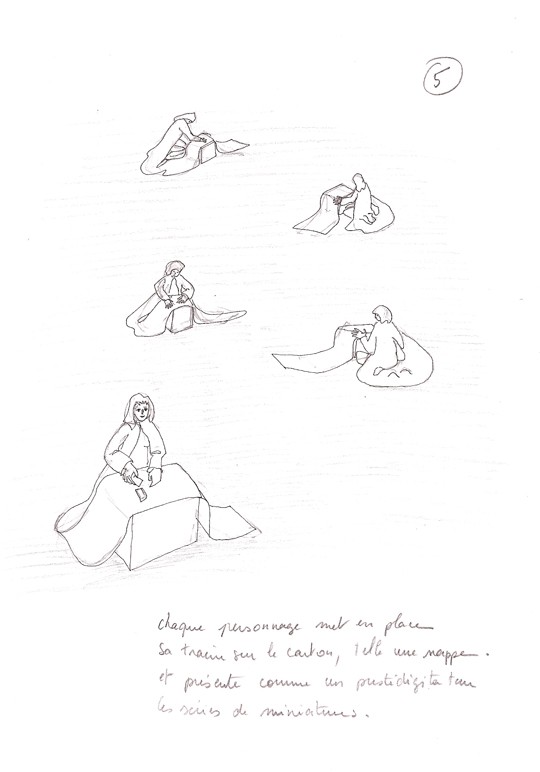 5
chaque personnage met en place
sa traine sur le carton, telle une nappe.
et présente comme un prestidigitateur
les séries de miniatures.